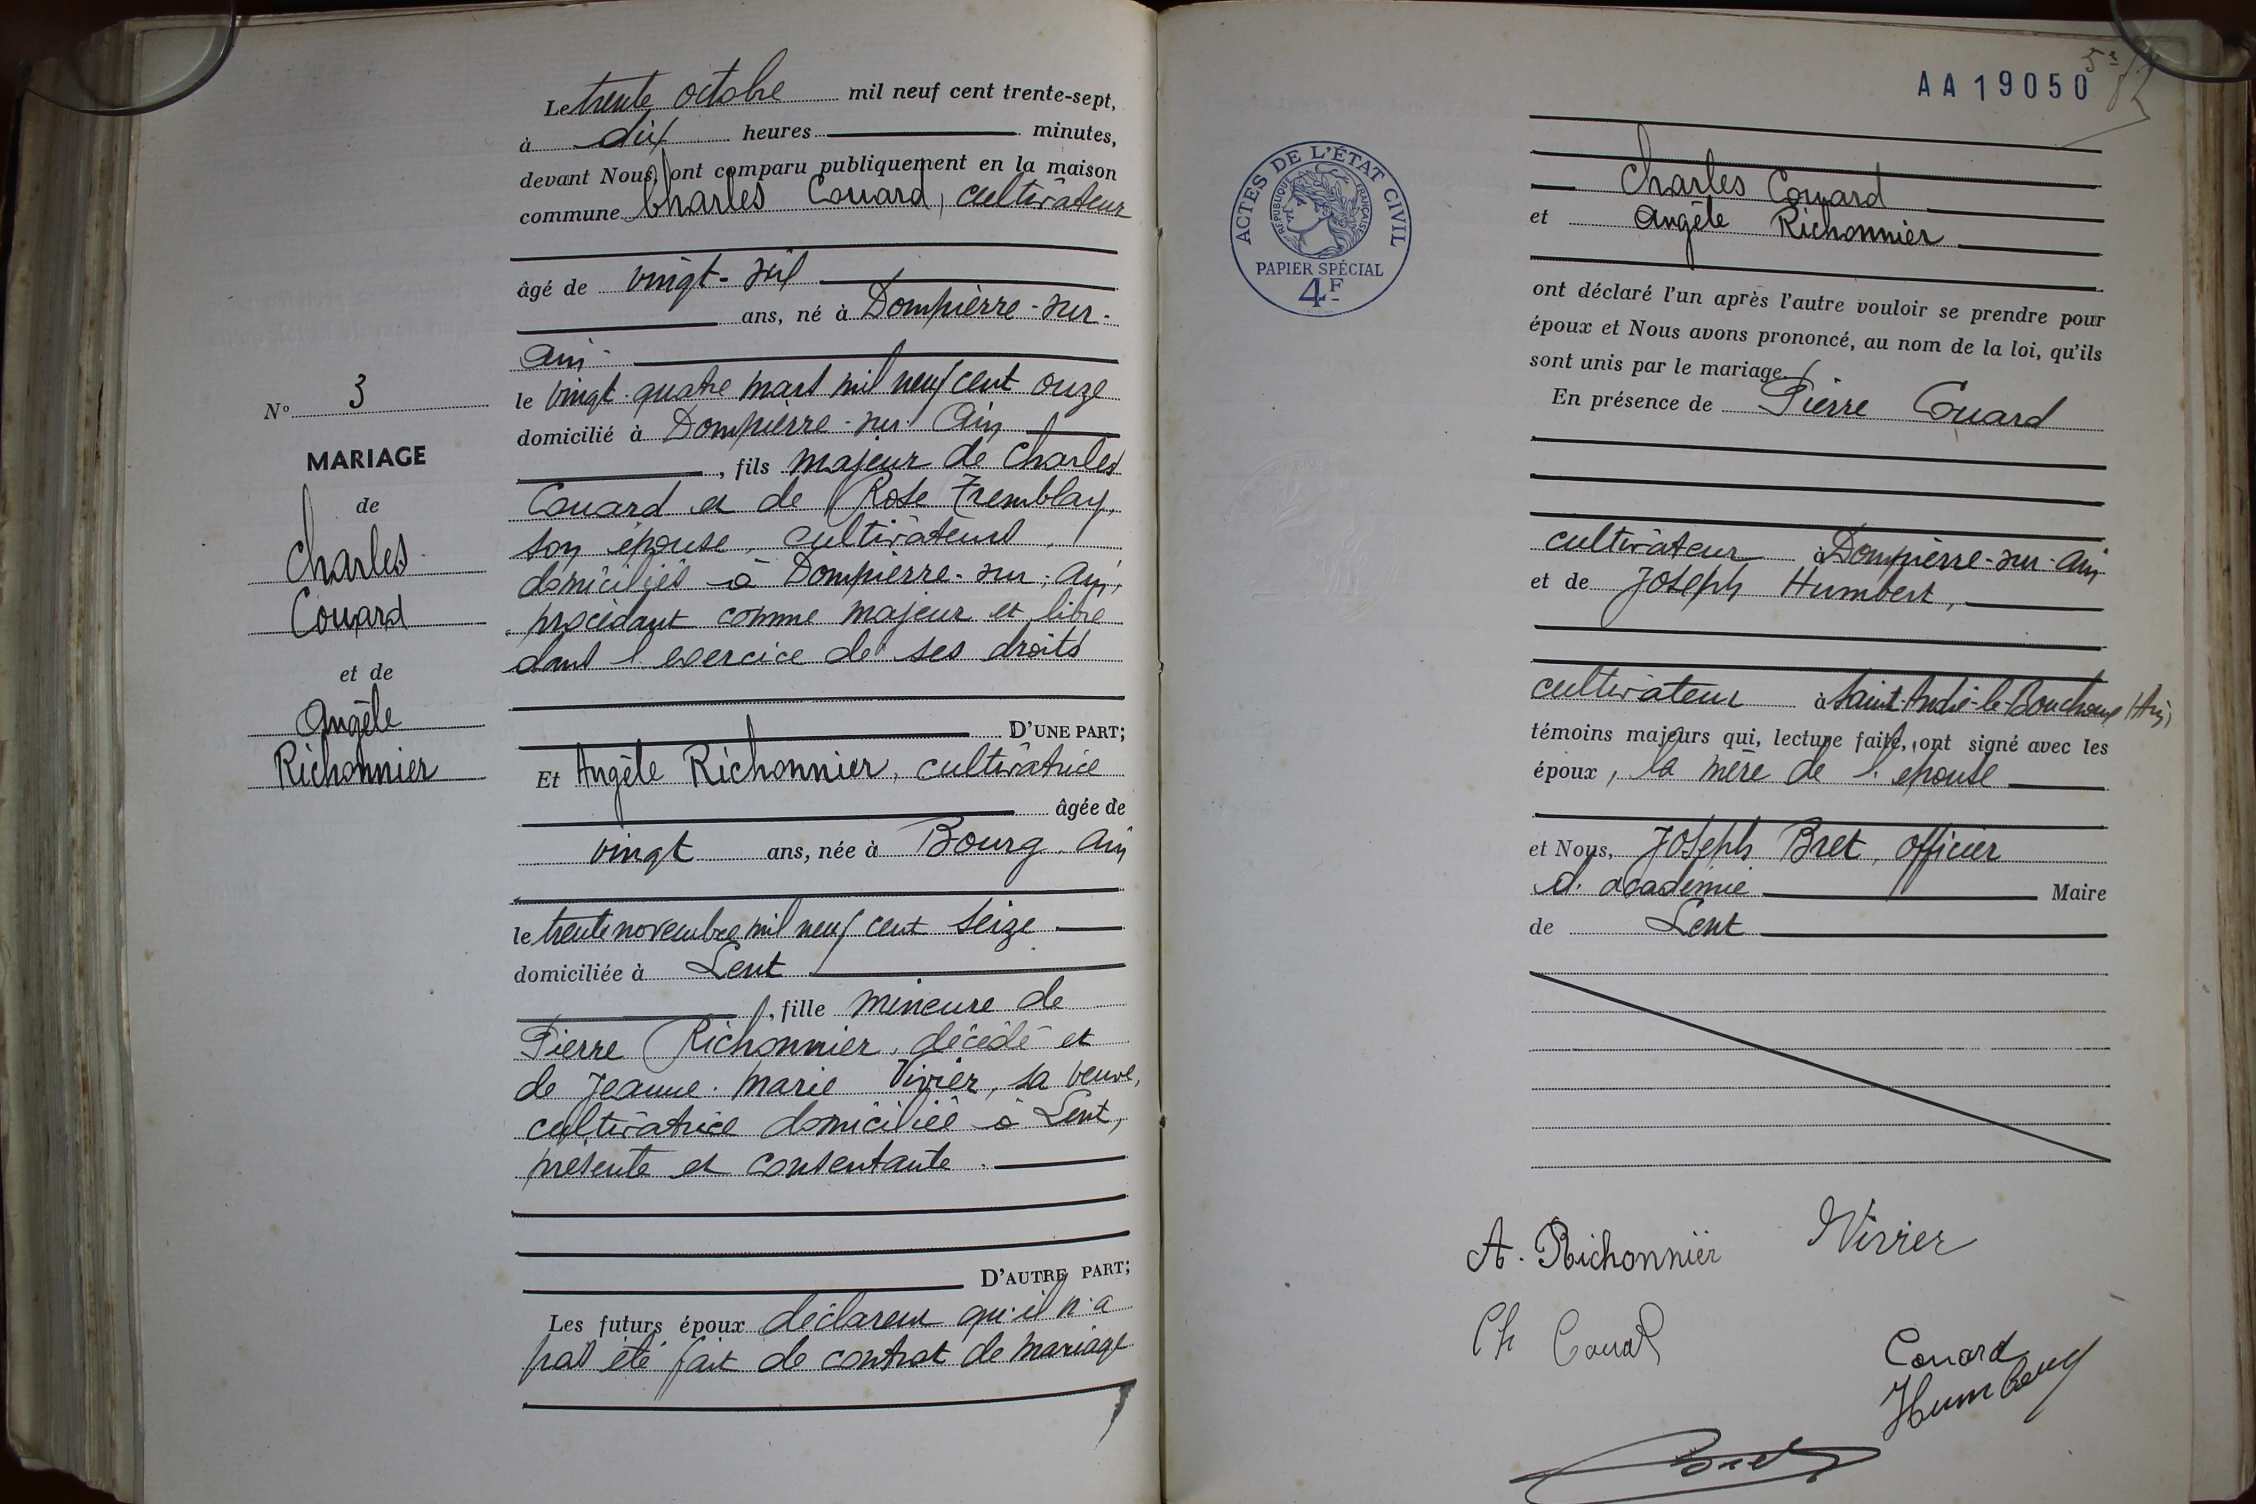 Le trente octobre mil neuf cent trente-sept,
à dix heures minutes,
devant Nous, ont comparu publiquement en la maison
commune Charles Couard, cultivateur
âgé de vingt-six
ans, né à Dompierre-sur-
Ain
le vingt-quatre mars mil neuf cent onze
domicilié à Dompierre-sur-Ain
, fils majeur de Charles
Couard et de Rose Tremblay,
son épouse, cultivateurs,
domiciliés à Dompierre-sur-Ain,
procédant comme majeur et libre
dans l'exercice de ses droits
D'UNE PART;
Et Angèle Richonnier, cultivatrice
âgée de
vingt ans, née à Bourg, Ain
le trente novembre mil neuf cent seize
domiciliée à Lent
, fille mineure de
Pierre Richonnier, décédé et
de Jeanne-Marie Vivier, sa veuve,
cultivatrice domiciliée à Lent,
présente et consentante.
D'AUTRE PART;
Les futurs époux déclarent qu'il n'a
pas été fait de contrat de mariage
N° 3
MARIAGE
de
Charles
Couard
et de
Angèle
Richonnier
AA19050
ACTES DE L'ÉTAT CIVIL
RÉPUBLIQUE FRANÇAISE
PAPIER SPÉCIAL
4F
Charles Couard
et Angèle Richonnier
ont déclaré l'un après l'autre vouloir se prendre pour
époux et Nous avons prononcé, au nom de la loi, qu'ils
sont unis par le mariage.
En présence de Pierre Couard
cultivateur à Dompierre-sur-Ain
et de Joseph Humbert,
cultivateur à Saint-André-le-Bouchoux (Ain)
témoins majeurs qui, lecture faite, ont signé avec les
époux, la mère de l'épouse
et Nous, Joseph Bret, officier
d'académie Maire
de Lent
A. Richonnier Vivier
Ch Couard
Couard
Humbert
Bret